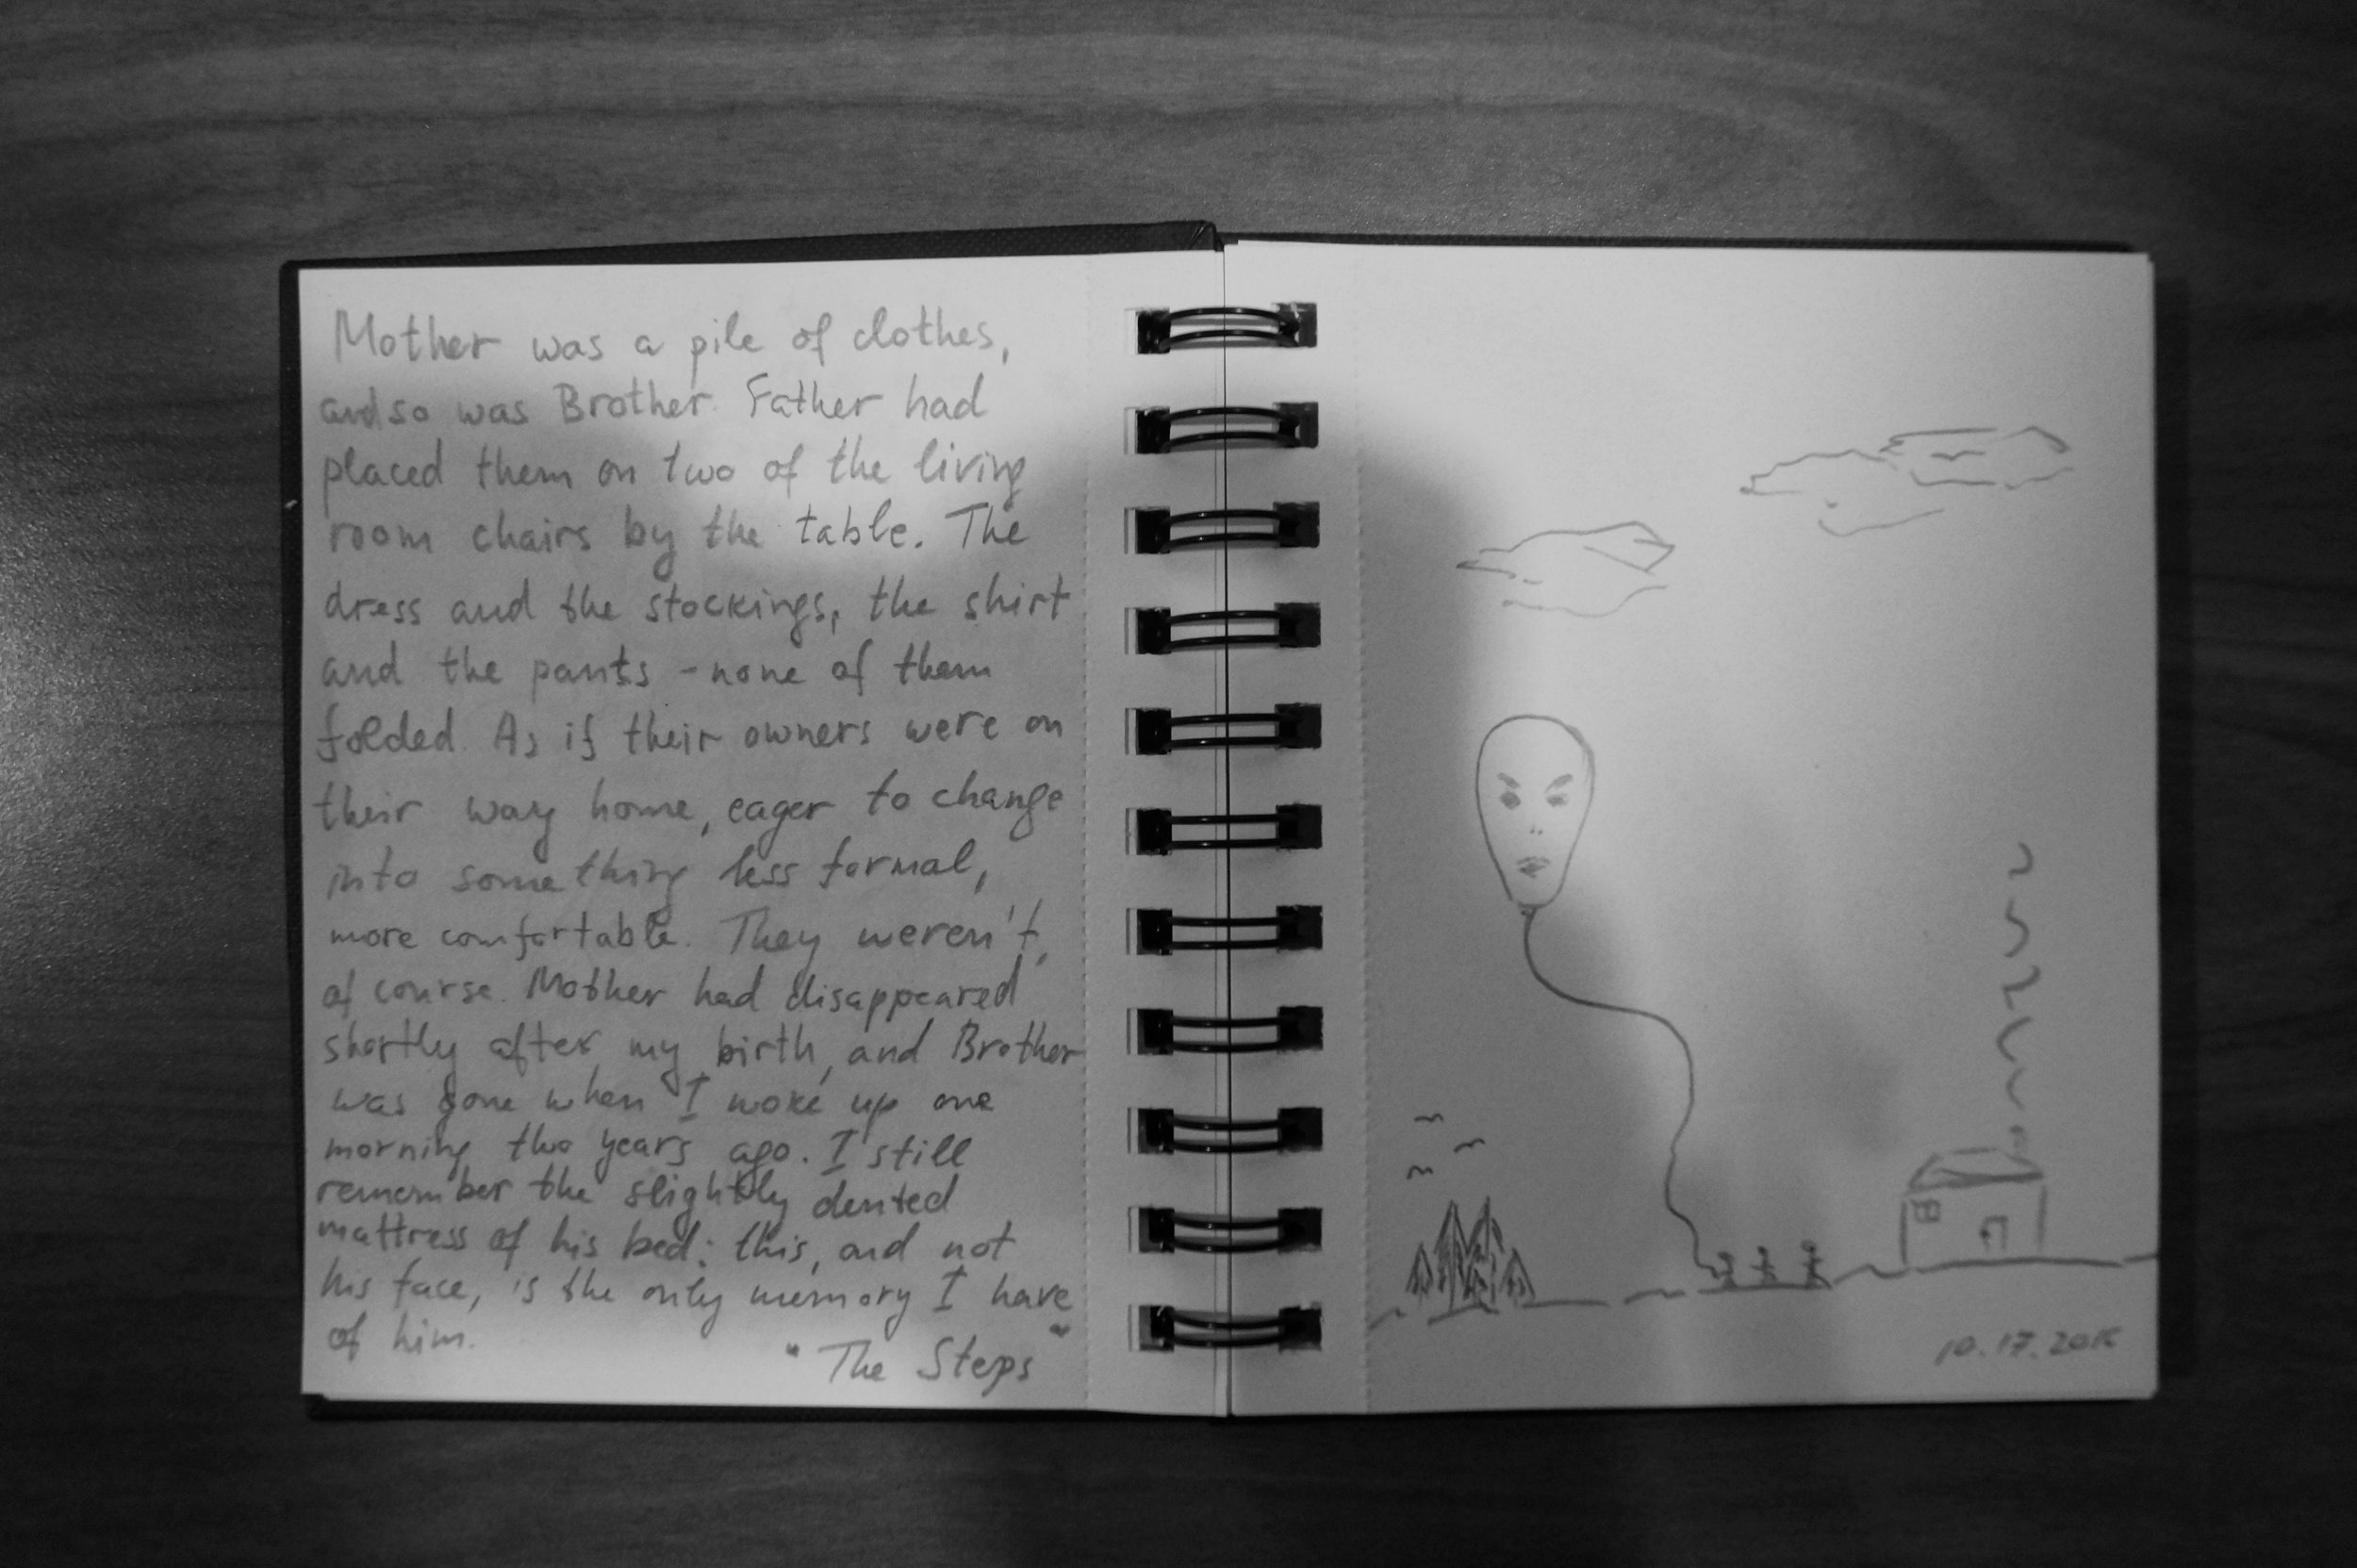 Mother was a pile of clothes,
and so was Brother. Father had
placed them on two of the living
room chairs by the table. The
dress and the stockings, the shirt
and the pants - none of them
folded. As if their owners were on
their way home, eager to change
into something less formal,
more comfortable. They weren't,
of course. Mother had disappeared
shortly after my birth, and Brother
was gone when I woke up one
morning two years ago. I still
remember the slightly dented
mattress of his bed: this, and not
his face, is the only memory I have
of him.
"The Steps"
10.17.2015